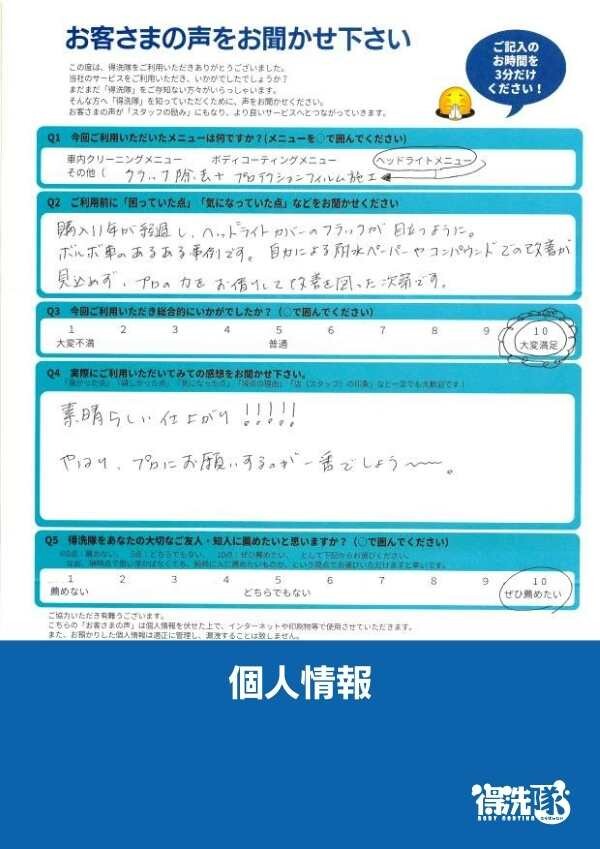 お客さまの声をお聞かせ下さい
ご記入の
お時間を
3分だけ
ください！
この度は、得洗隊をご利用いただきありがとうございました。
当社のサービスをご利用いただき、いかがでしたでしょうか？
まだまだ「得洗隊」をご存知ない方々がいらっしゃいます。
そんな方へ「得洗隊」を知っていただくために、声をお聞かせください。
お客さまの声が「スタッフの励み」にもなり、より良いサービスへとつながっていきます。
Q1 今回ご利用いただいたメニューは何ですか？(メニューを○で囲んでください)
車内クリーニングメニュー ボディコーティングメニュー ヘッドライトメニュー
その他（ クラック除去+プロテクションフィルム施工
Q2 ご利用前に「困っていた点」「気になっていた点」などをお聞かせください
購入11年が経過し、ヘッドライトカバーのクラックが目立つように。
ボルボ車のあるある事例です。自力による耐水ペーパーやコンパウンドでの改善が
見込めず、プロの力をお借りして改善を図った次第です。
Q3 今回ご利用いただき総合的にいかがでしたか？（○で囲んでください）
1 2 3 4 5 6 7 8 9 10
大変不満 普通 大変満足
Q4 実際にご利用いただいてみての感想をお聞かせ下さい。
「良かった点」「嬉しかった点」「気になった点」「採点の理由」「店（スタッフ）の印象」など一言でも大歓迎です！
素晴らしい仕上がり！！！！！
やはり、プロにお願いするのが一番でしょう〜〜。
Q5 得洗隊をあなたの大切なご友人・知人に薦めたいと思いますか？（○で囲んでください）
1 2 3 4 5 6 7 8 9 10
薦めない どちらでもない ぜひ薦めたい
ご協力いただき有難うございます。
こちらの「お客さまの声」は個人情報を伏せた上で、インターネットや印刷物等で使用させていただきます。
また、お預かりした個人情報は適正に管理し、漏洩することは致しません。
個人情報
得洗隊